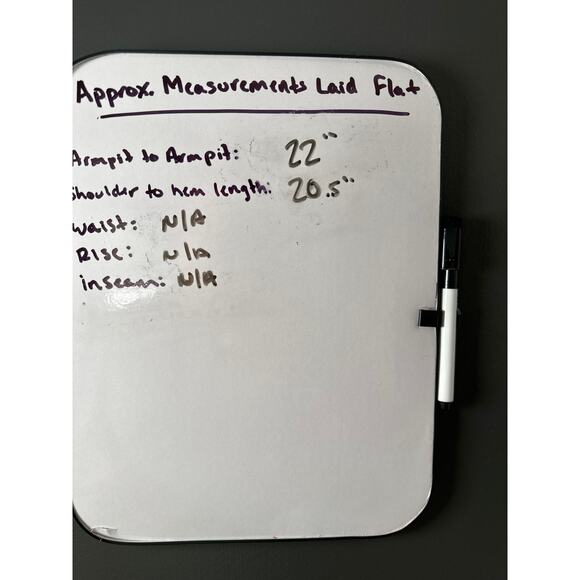 Approx. Measurements Laid Flat
Armpit to Armpit: 22"
Shoulder to hem length: 20.5"
Waist: N/A
Rise: N/A
inseam: N/A